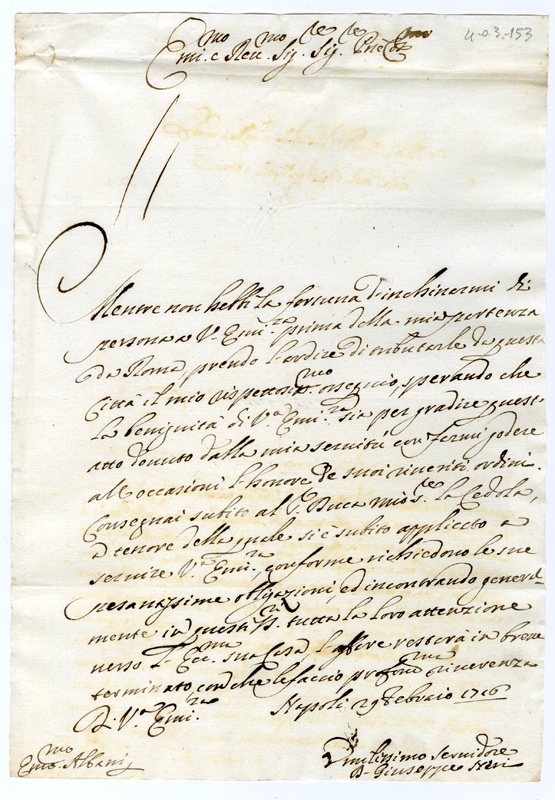 4-3-153
Em.mo e Rev.mo Sig.re Sig.re Pne Col.mo
Mentre non hebbi la fortuna d'inchinarmi di
persona a V. Emi.za prima della mia partenza
da Roma prendo l'ardire di tributarle da questa
Città il mio rispettosis.mo ossequio, sperando che
la benignità di V.a Emi.za sia per gradire quest'
atto dovuto dalla mia servitù con farmi godere
all'occasioni l'honore de suoi riveriti ordini.
Consegnai subito al S.r Duca mio S.re la Cedola,
a tenore della quale si è subito applicato a
servire V.a Emi.za, conforme richiedono le sue
pesantissime obligazioni, ed incontrando general=
mente in questi SS.ri tutta la loro attenzione
verso l'Ecc.ma sua Casa l'affare resterà in breve
terminato, con che le faccio profon.ma riverenza
Di V.a Emi.za Napoli 29 Febraio 1716
Em.mo Albani
Umilissimo Servidore
D. Giuseppe